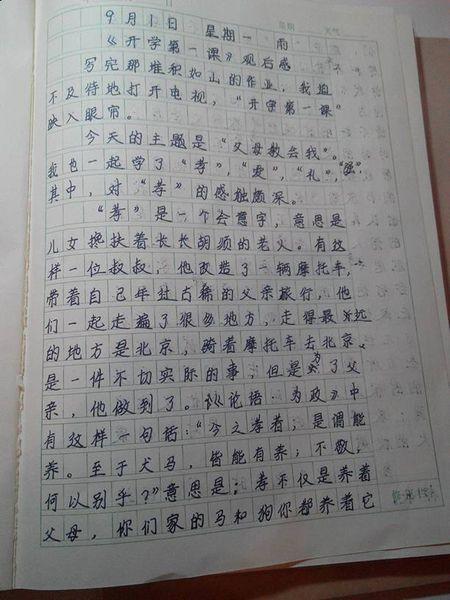 9月1日 星期一 雨
《开学第一课》观后感
写完那堆积如山的作业，我迫
不及待地打开电视，“开学第一课”
映入眼帘。
今天的主题是“父母教会我”。
我也一起学了“孝”，“爱”，“礼”，“强”
其中，对“孝”的感触颇深。
“孝”是一个会意字，意思是
儿女搀扶着长长胡须的老人。有这
样一位叔叔，他改造了一辆摩托车，
带着自己年过古稀的父亲旅行，他
们一起走遍了很多地方，走得最远
的地方是北京，骑着摩托车去北京，
是一件不切实际的事，但是为了父
亲，他做到了。《论语·为政》中
有这样一句话：“今之孝者，是谓能
养。至于犬马，皆能有养；不敬，
何以别乎？”意思是：孝不仅是养着
父母，你们家的马和狗你都养着它